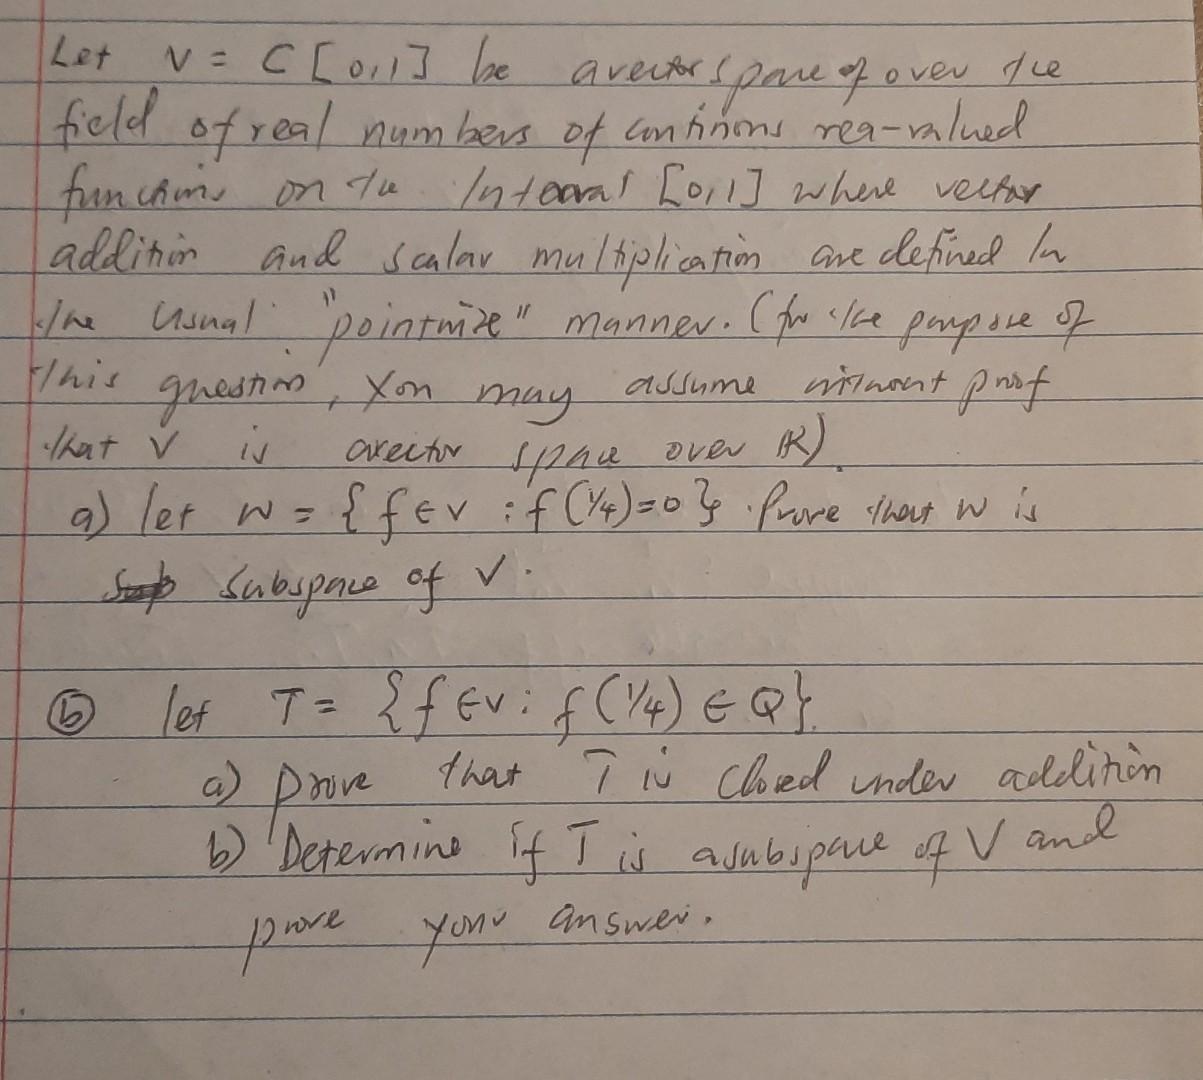 Let V = C[0,1] be avector space of over the
field of real numbers of continons rea-valued
functions on the Interval [0,1] where vector
addition and scalar multiplication are defined In
the Usual "pointwize" manner. (for the purpose of
this question, you may assume without proof
that V is avector space over ℝ).
a) let W = {f ∈ V : f(1/4)=0}. Prove that W is
subspace of V.
ⓑ let T = {f ∈ V : f(1/4) ∈ Q}.
a) prove that T is Closed under addition
b) Determine if T is asubspace of V and
prove your answer.